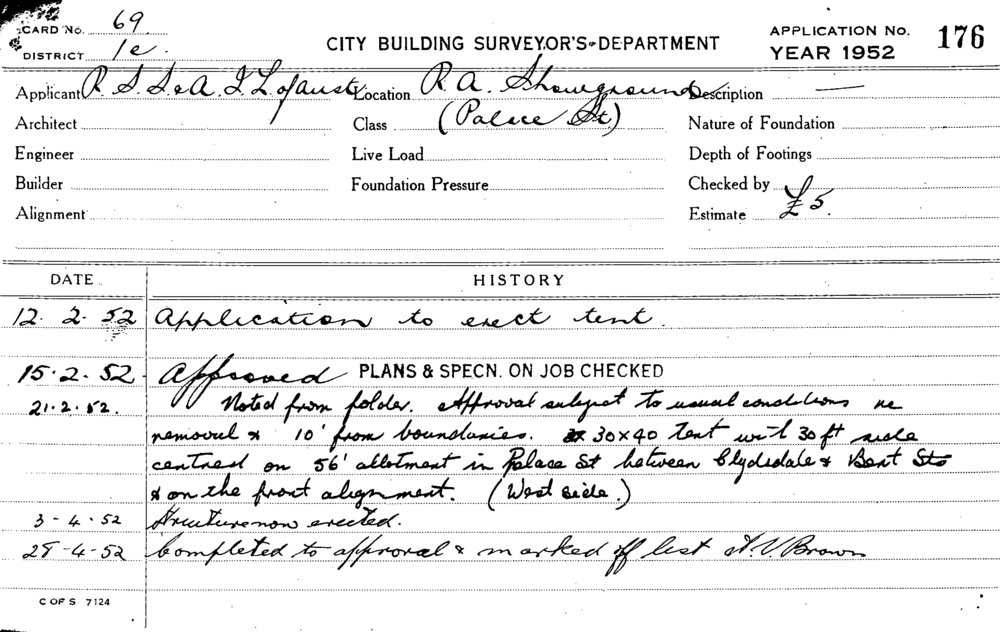 CARD NO. 69
DISTRICT 1e.
CITY BUILDING SURVEYOR'S DEPARTMENT
APPLICATION NO. 176
YEAR 1952
Applicant R. S. S. & A. I. L. of Aust. Location R. A. Showground Description —
Architect Class (Palace St) Nature of Foundation
Engineer Live Load Depth of Footings
Builder Foundation Pressure Checked by
Alignment Estimate £5.
DATE HISTORY
12. 2. 52 Application to erect tent.
15. 2. 52. Approved PLANS & SPECN. ON JOB CHECKED
21. 2. 52. Noted from folder. Approval subject to usual conditions re
removal & 10' from boundaries. 30 x 40 Tent with 30 ft side
centred on 56' allotment in Palace St between Clydesdale & Bent Sts
& on the front alignment. (West side.)
3 - 4 . 52 Structure now erected.
-4-52 Completed to approval & marked off list V. Brown
C OF S 7124